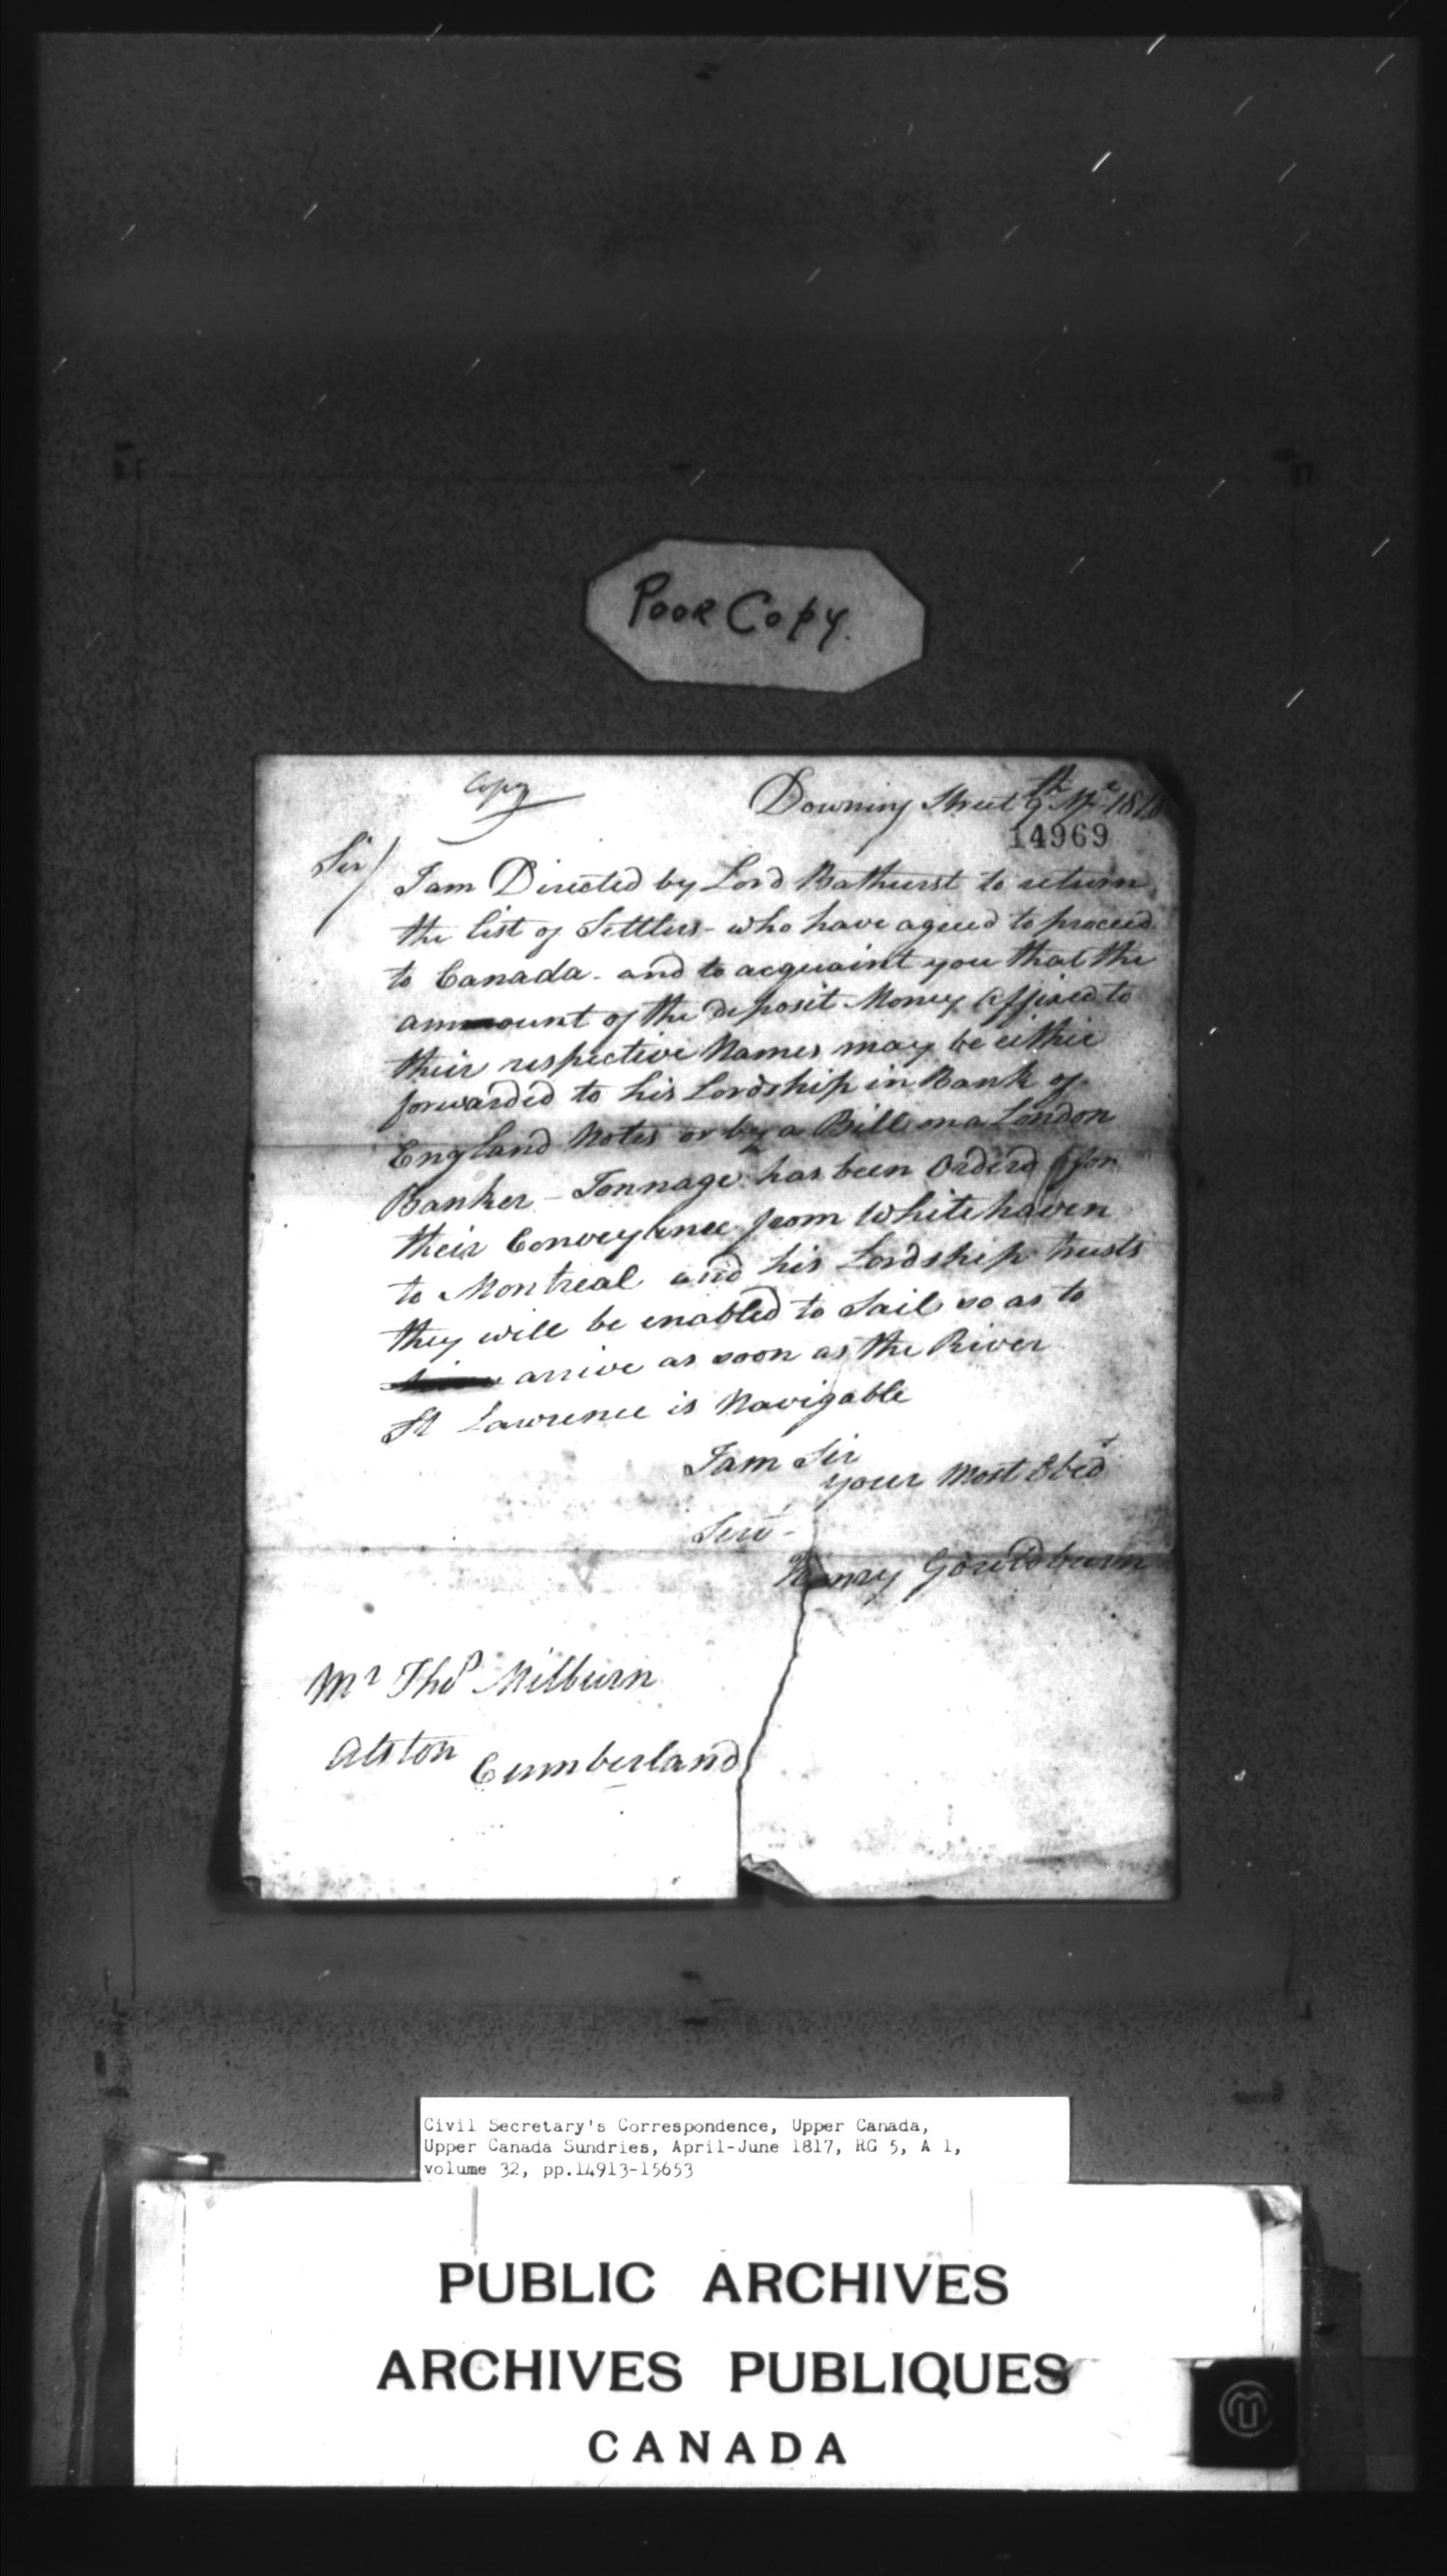 Poor Copy.
Copy
Downing Street 9th 1818
14969
Sir/
I am Directed by Lord Bathurst to return
the list of Settlers - who have agreed to proceed
to Canada - and to acquaint you that the
ammount of the deposit Money Affixed to
their respective Names may be either
forwarded to his Lordship in Bank of
England Notes or by a Bill on a London
Banker - Tonnage has been Orderd for
their Conveyance from Whitehaven
to Montreal and his Lordship trusts
they will be enabled to Sail so as to
arrive as soon as the River
St Lawrence is Navigable
I am Sir
your Most Obedt
Servt -
Henry Gouldburn
Mr Thos Milburn
Alston Cumberland
Civil Secretary's Correspondence, Upper Canada,
Upper Canada Sundries, April-June 1817, RG 5, A 1,
volume 32, pp.14913-15653
PUBLIC ARCHIVES
ARCHIVES PUBLIQUES
CANADA